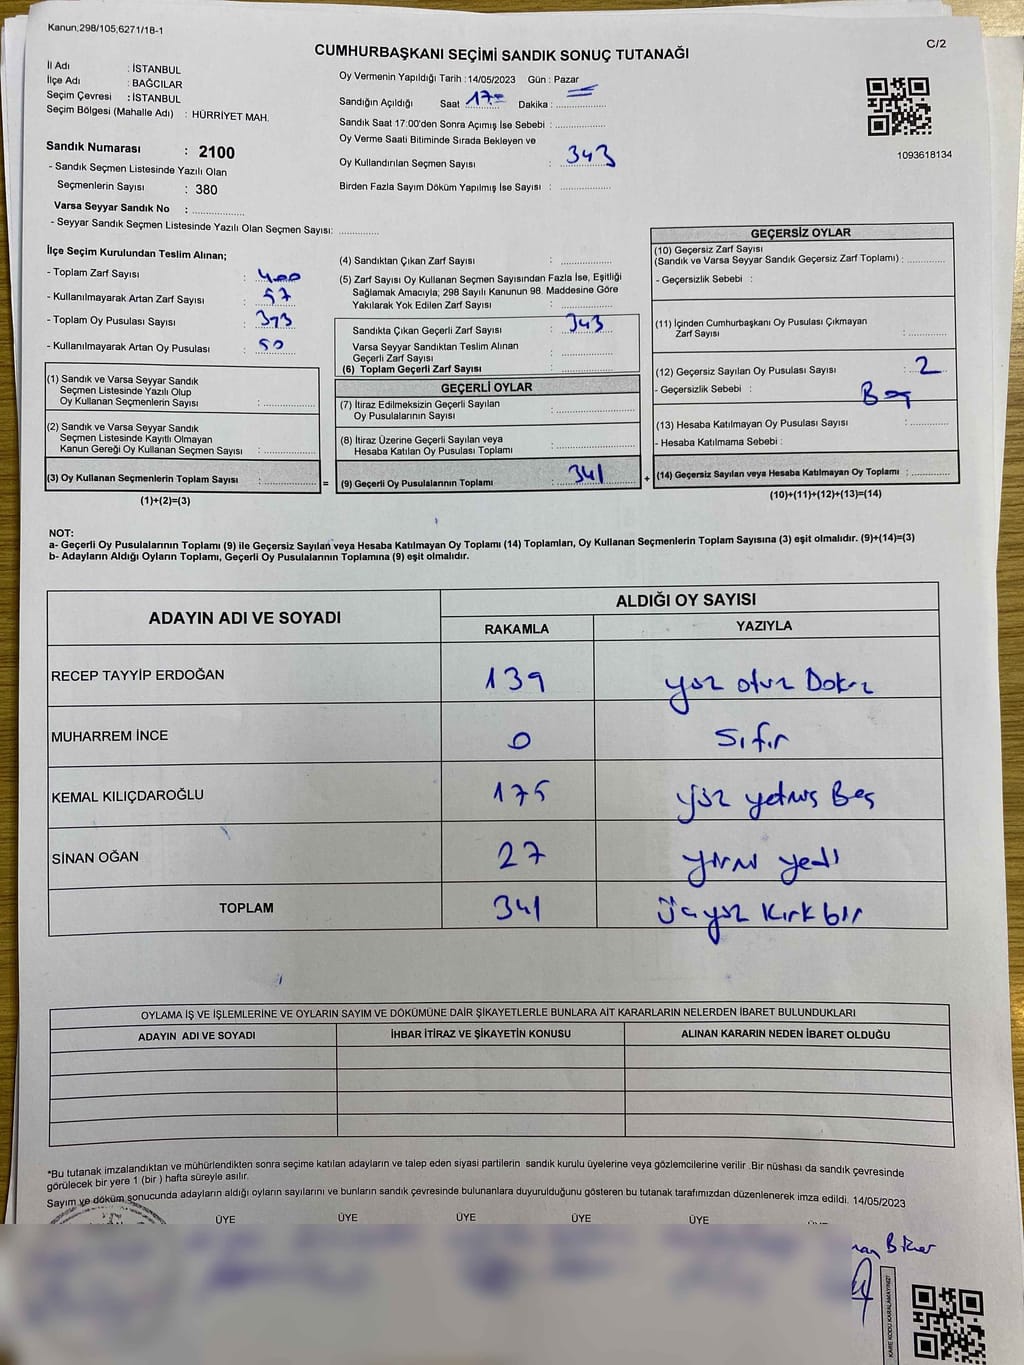 Kanun,298/105,6271/18-1
C/2
CUMHURBAŞKANI SEÇİMİ SANDIK SONUÇ TUTANAĞI
İl Adı : İSTANBUL
İlçe Adı : BAĞCILAR
Seçim Çevresi : İSTANBUL
Seçim Bölgesi (Mahalle Adı) : HÜRRİYET MAH.
Sandık Numarası : 2100
- Sandık Seçmen Listesinde Yazılı Olan
Seçmenlerin Sayısı : 380
Varsa Seyyar Sandık No : ..................
- Seyyar Sandık Seçmen Listesinde Yazılı Olan Seçmen Sayısı: ..............
Oy Vermenin Yapıldığı Tarih : 14/05/2023 Gün : Pazar
Sandığın Açıldığı Saat 17.= Dakika : ..................
Sandık Saat 17:00'den Sonra Açımış İse Sebebi : ..................
Oy Verme Saati Bitiminde Sırada Bekleyen ve
Oy Kullandırılan Seçmen Sayısı : 343
Birden Fazla Sayım Döküm Yapılmış İse Sayısı : ..................
1093618134
İlçe Seçim Kurulundan Teslim Alınan;
- Toplam Zarf Sayısı : 400
- Kullanılmayarak Artan Zarf Sayısı : 57
- Toplam Oy Pusulası Sayısı : 393
- Kullanılmayarak Artan Oy Pusulası : 50
(1) Sandık ve Varsa Seyyar Sandık
Seçmen Listesinde Yazılı Olup
Oy Kullanan Seçmenlerin Sayısı : ..................
(2) Sandık ve Varsa Seyyar Sandık
Seçmen Listesinde Kayıtlı Olmayan
Kanun Gereği Oy Kullanan Seçmen Sayısı : ..................
(3) Oy Kullanan Seçmenlerin Toplam Sayısı : .................. =
(1)+(2)=(3)
(4) Sandıktan Çıkan Zarf Sayısı : ..................
(5) Zarf Sayısı Oy Kullanan Seçmen Sayısından Fazla İse, Eşitliği
Sağlamak Amacıyla; 298 Sayılı Kanunun 98. Maddesine Göre
Yakılarak Yok Edilen Zarf Sayısı : ..................
Sandıkta Çıkan Geçerli Zarf Sayısı : 343
Varsa Seyyar Sandıktan Teslim Alınan
Geçerli Zarf Sayısı : ..................
(6) Toplam Geçerli Zarf Sayısı : ..................
GEÇERLİ OYLAR
(7) İtiraz Edilmeksizin Geçerli Sayılan
Oy Pusulalarının Sayısı : ..................
(8) İtiraz Üzerine Geçerli Sayılan veya
Hesaba Katılan Oy Pusulası Toplamı : ..................
(9) Geçerli Oy Pusulalarının Toplamı : 341 +
GEÇERSİZ OYLAR
(10) Geçersiz Zarf Sayısı
(Sandık ve Varsa Seyyar Sandık Geçersiz Zarf Toplamı) : ..............
- Geçersizlik Sebebi :
(11) İçinden Cumhurbaşkanı Oy Pusulası Çıkmayan
Zarf Sayısı : ..............
(12) Geçersiz Sayılan Oy Pusulası Sayısı : 2
- Geçersizlik Sebebi :
(13) Hesaba Katılmayan Oy Pusulası Sayısı : ..............
- Hesaba Katılmama Sebebi :
(14) Geçersiz Sayılan veya Hesaba Katılmayan Oy Toplamı : ..............
(10)+(11)+(12)+(13)=(14)
NOT:
a- Geçerli Oy Pusulalarının Toplamı (9) ile Geçersiz Sayılan veya Hesaba Katılmayan Oy Toplamı (14) Toplamları, Oy Kullanan Seçmenlerin Toplam Sayısına (3) eşit olmalıdır. (9)+(14)=(3)
b- Adayların Aldığı Oyların Toplamı, Geçerli Oy Pusulalarının Toplamına (9) eşit olmalıdır.
ADAYIN ADI VE SOYADI
ALDIĞI OY SAYISI
RAKAMLA YAZIYLA
RECEP TAYYİP ERDOĞAN 139 yüz otuz Dokuz
MUHARREM İNCE 0 Sıfır
KEMAL KILIÇDAROĞLU 175 yüz yetmiş Beş
SİNAN OĞAN 27 yirmi yedi
TOPLAM 341 üçyüz kırk bir
OYLAMA İŞ VE İŞLEMLERİNE VE OYLARIN SAYIM VE DÖKÜMÜNE DAİR ŞİKAYETLERLE BUNLARA AİT KARARLARIN NELERDEN İBARET BULUNDUKLARI
ADAYIN ADI VE SOYADI İHBAR İTİRAZ VE ŞİKAYETİN KONUSU ALINAN KARARIN NEDEN İBARET OLDUĞU
*Bu tutanak imzalandıktan ve mühürlendikten sonra seçime katılan adayların ve talep eden siyasi partilerin sandık kurulu üyelerine veya gözlemcilerine verilir .Bir nüshası da sandık çevresinde
görülecek bir yere 1 (bir ) hafta süreyle asılır.
Sayım ve döküm sonucunda adayların aldığı oyların sayılarını ve bunların sandık çevresinde bulunanlara duyurulduğunu gösteren bu tutanak tarafımızdan düzenlenerek imza edildi. 14/05/2023
ÜYE ÜYE ÜYE ÜYE ÜYE
KARE KODU KARALAMAYINIZ!